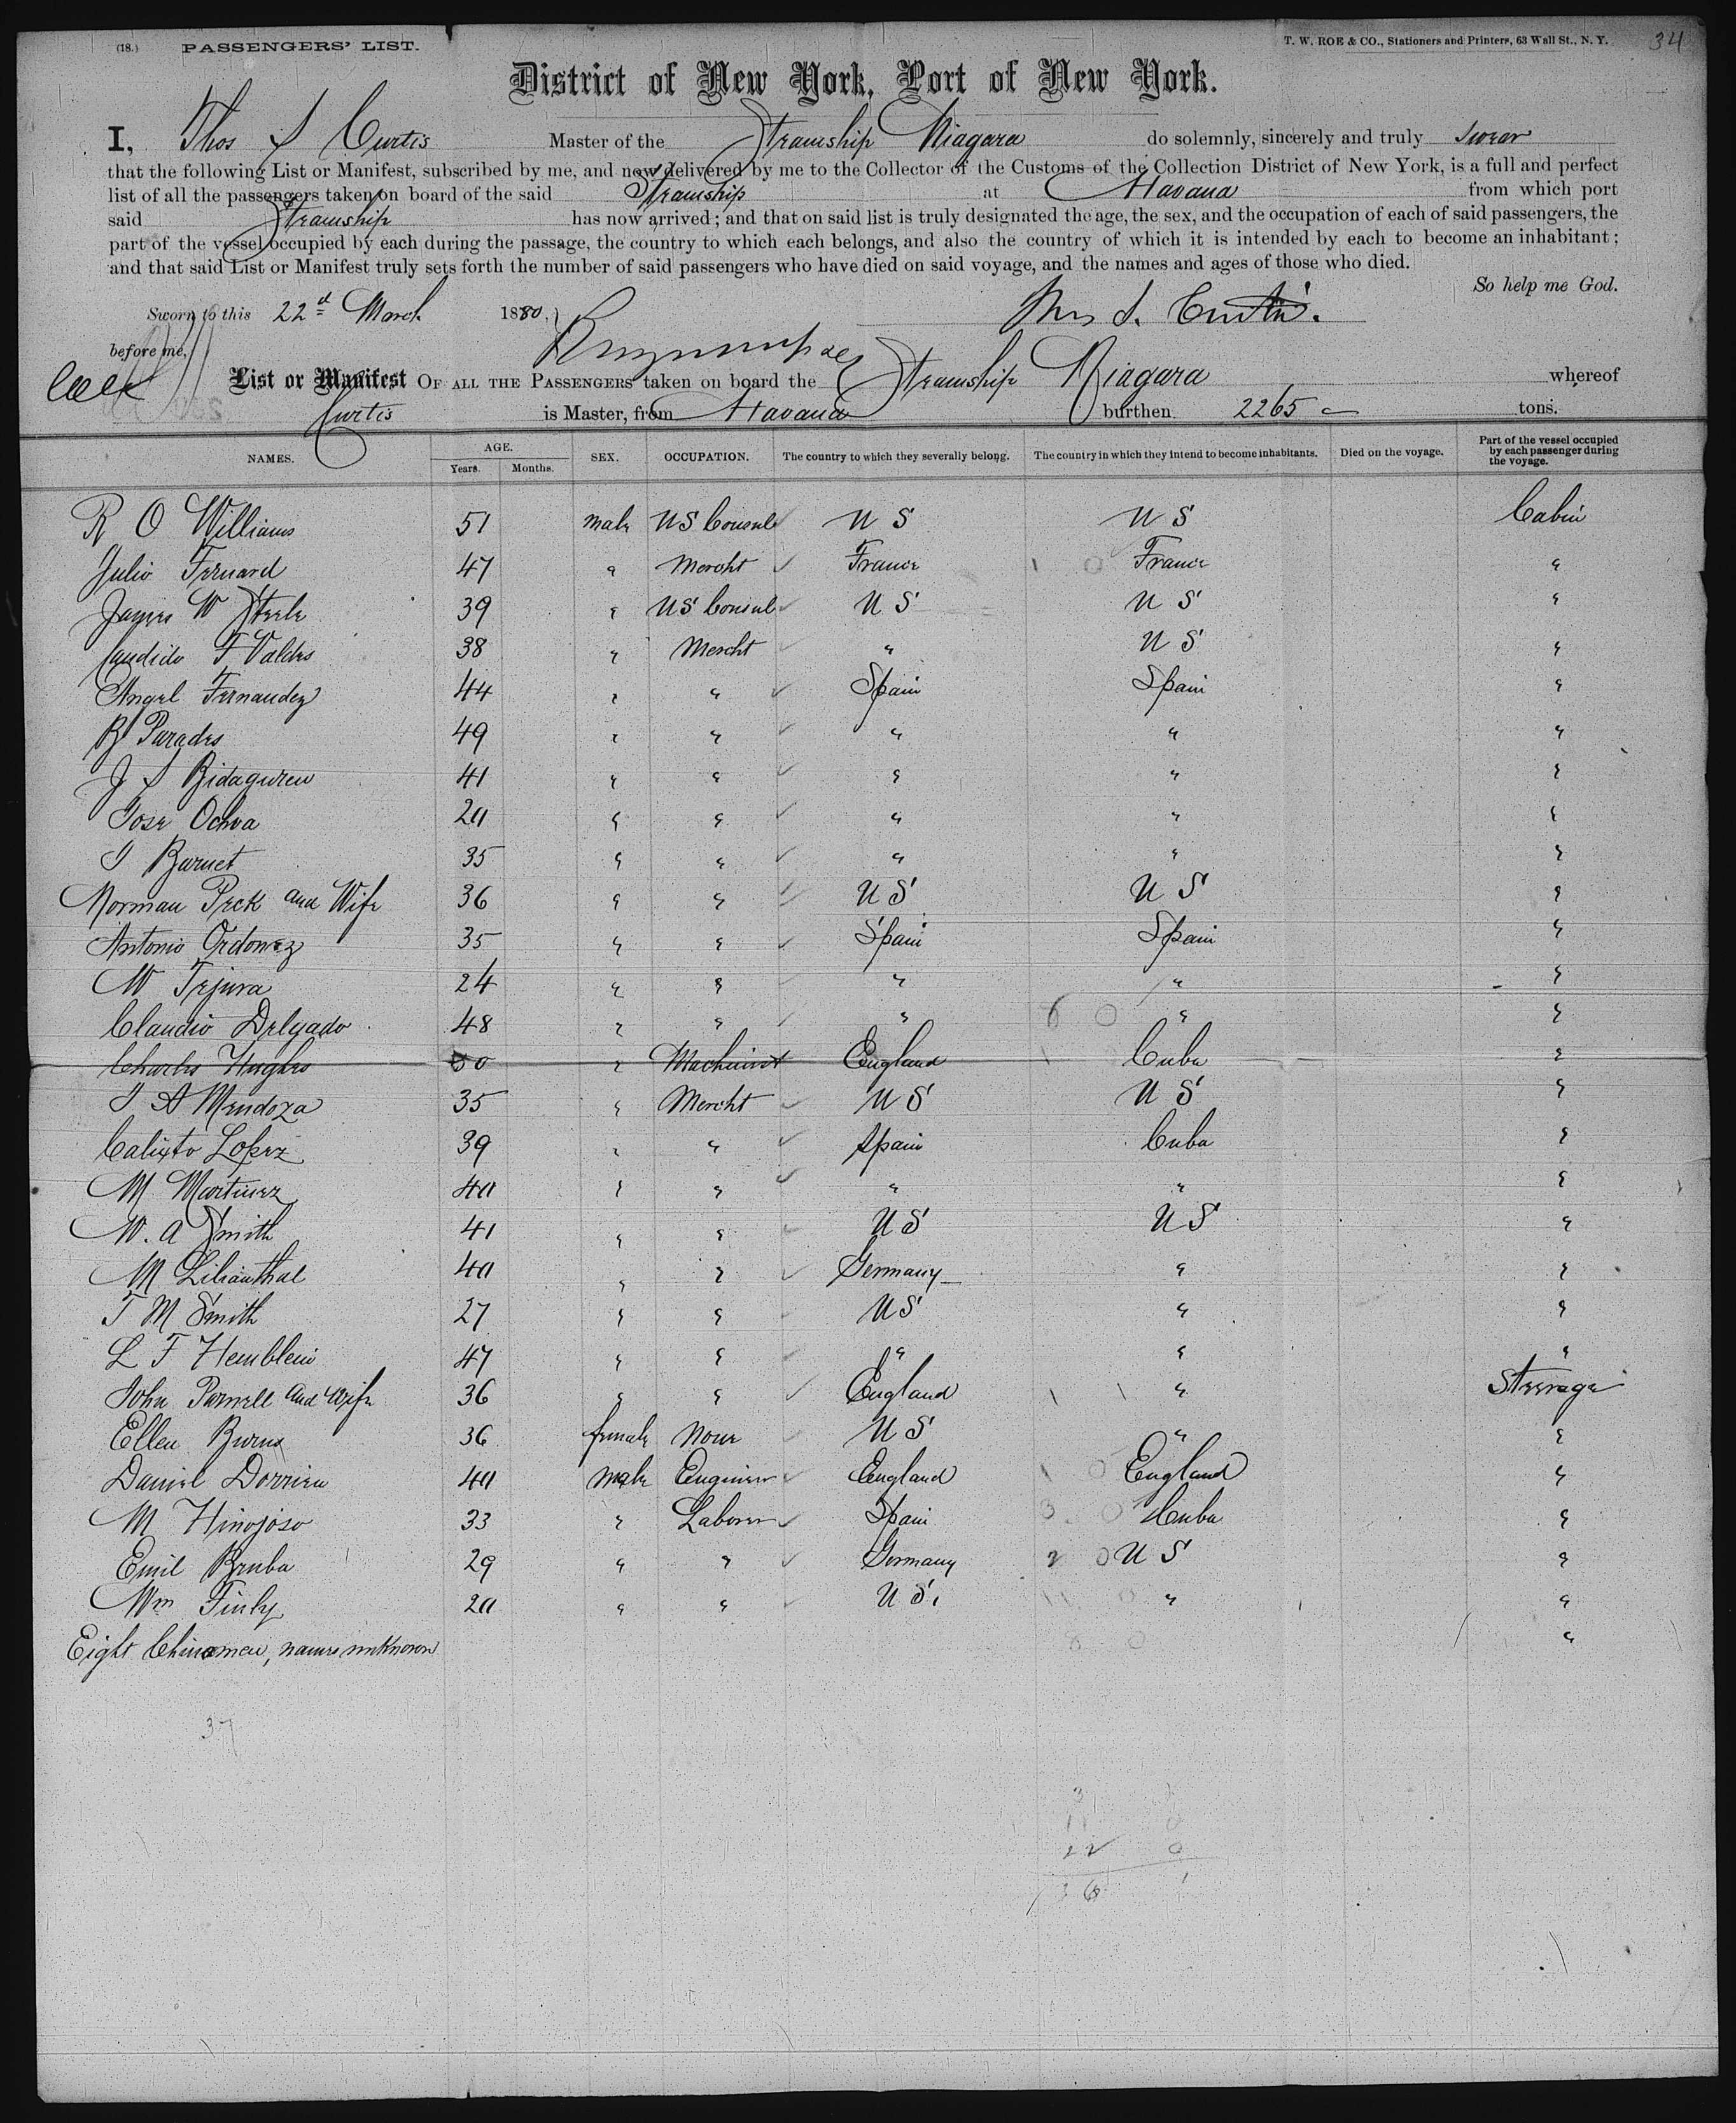 (18.) PASSENGERS' LIST. T. W. ROE & CO., Stationers and Printers, 63 Wall St., N. Y. 34
District of New York, Port of New York.
I, Thos S Curtis Master of the Steamship Niagara do solemnly, sincerely and truly swear
that the following List or Manifest, subscribed by me, and now delivered by me to the Collector of the Customs of the Collection District of New York, is a full and perfect
list of all the passengers taken on board of the said Steamship at Havana from which port
said Steamship has now arrived; and that on said list is truly designated the age, the sex, and the occupation of each of said passengers, the
part of the vessel occupied by each during the passage, the country to which each belongs, and also the country of which it is intended by each to become an inhabitant;
and that said List or Manifest truly sets forth the number of said passengers who have died on said voyage, and the names and ages of those who died.
So help me God.
Sworn to this 22d March 1880, Thos S. Curtis.
before me,
List or Manifest OF ALL THE PASSENGERS taken on board the Steamship Niagara whereof
Curtis is Master, from Havana burthen 2265 tons.
NAMES. AGE. Years. Months. SEX. OCCUPATION. The country to which they severally belong. The country in which they intend to become inhabitants. Died on the voyage. Part of the vessel occupied by each passenger during the voyage.
R O Williams 51 male US Consul U S U S Cabin
Julio Fernard 47 " Mercht France 1 0 France "
James W Steele 39 " US Consul U S U S "
Candido F Valdes 38 " Mercht " U S "
Angel Fernandez 44 " " Spain Spain "
B Parades 49 " " " " "
J S Bidaguren 41 " " " " "
Jose Ochoa 20 " " " " "
J Barnet 35 " " " " "
Norman Peck and Wife 36 " " U S U S "
Antonio Ordonez 35 " " Spain Spain "
W Tejura 24 " " " " "
Claudio Delgado 48 " " " 6 0 " "
Charles Hughes 50 " Machinist England 1 Cuba "
J A Mendoza 35 " Mercht U S U S "
Calixto Lopez 39 " " Spain Cuba "
M. Martinez 40 " " " " "
W. A Smith 41 " " U S U S "
M Lilianthal 40 " " Germany " "
T M Smith 27 " " U S " "
L F Hemblein 47 " " " " "
John Parnell and Wife 36 " " England 1 1 " Steerage
Ellen Burns 36 female None U S " "
Daniel Dorrien 40 male Engineer England 1 0 England "
M Hinojoso 33 " Laborer Spain 3 0 Cuba "
Emil Bruba 29 " " Germany 2 0 U S "
Wm Finly 20 " " U S. 11 0 " "
Eight Chinamen, names unknown 8 0 "
37
3
11 0
22 0
36 1